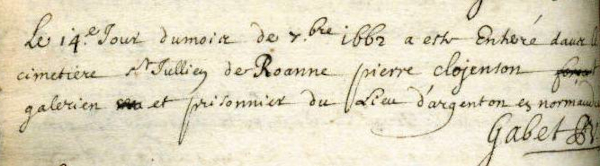 Le 14.e Jour dumois de 7.bre 1662 a este Enterré dans le
cimetière St Jullien de Roanne pierre clojenson
galerien et prisonnier du Lieu d'argenton en normandie
Gabet